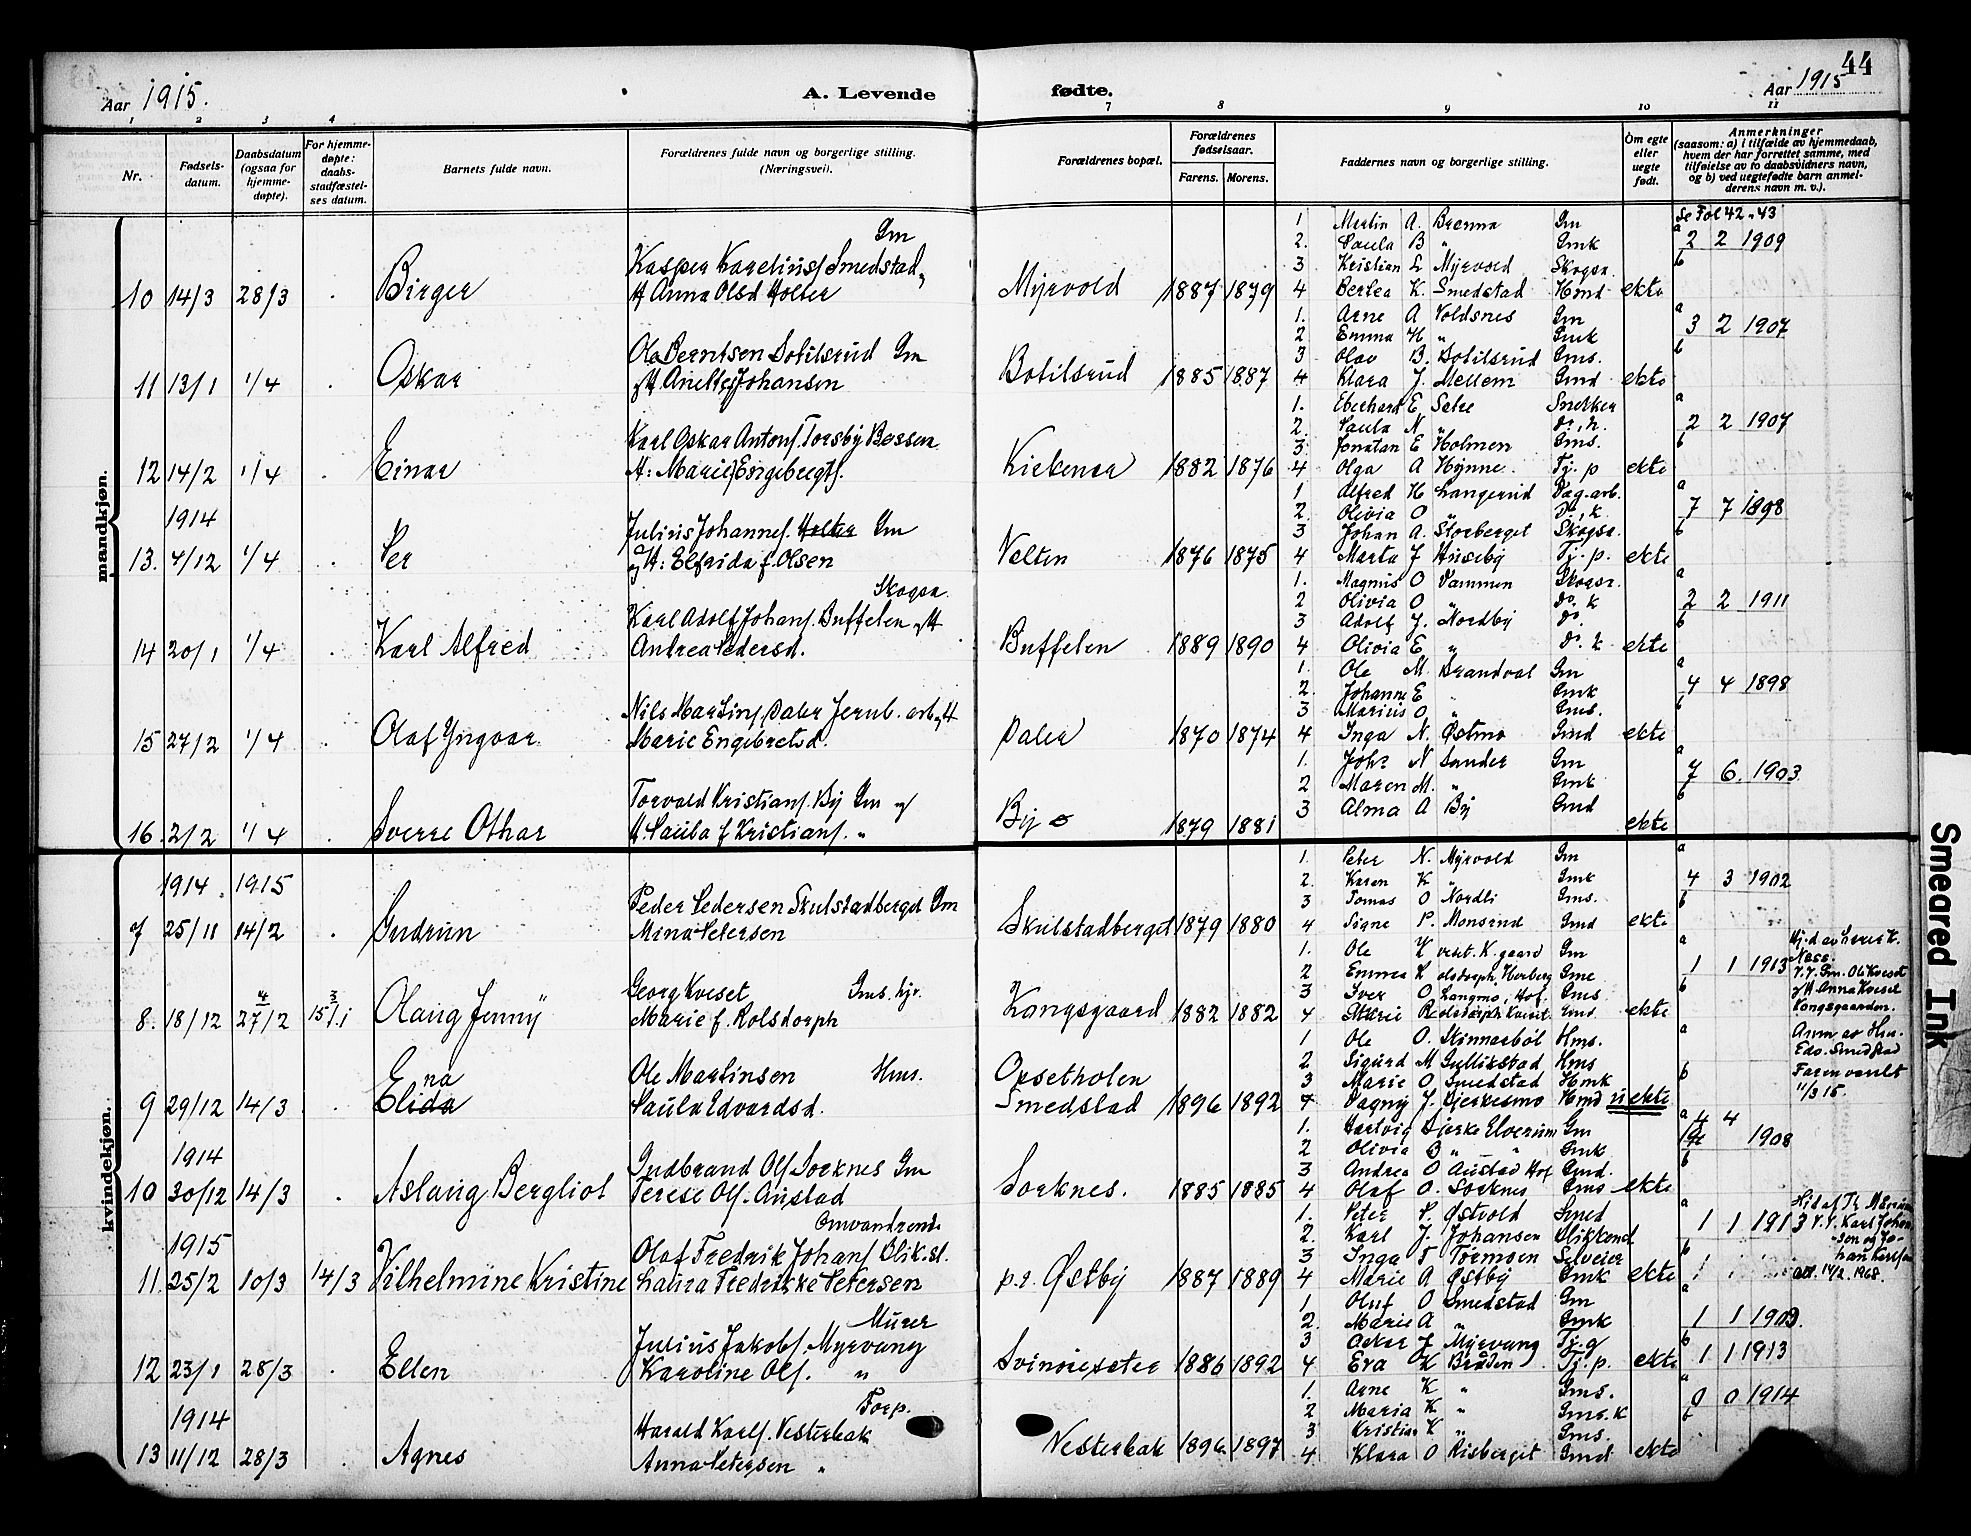 Aar 1915.
A. Levende
fødte.
Aar 1915
44
1 2 3 4 7 8 9 10 11
Nr.
Fødsels-
datum.
Daabsdatum
(ogsaa for
hjemme-
døpte).
For hjemme-
døpte:
daabs-
stadfæstel-
ses datum.
Barnets fulde navn.
Forældrenes fulde navn og borgerlige stilling.
(Næringsvei).
Forældrenes bopæl.
Forældrenes
fødselsaar.
Farens. Morens.
Faddernes navn og borgerlige stilling.
Om egte
eller
uegte
født.
Anmerkninger
(saasom: a) i tilfælde av hjemmedaab,
hvem der har forrettet samme, med
tilføielse av to daabsvidners navn,
og b) ved uegtefødte barn anmel-
derens navn m. v.).
mandkjøn.
Gm
Kasper Karelius. Smedstad,
10 14/3 28/3 Birger
H Anna Olsd Holter
Myrvold 1887 1879
1 Martin A. Brenna Gm
2. Paula B " Gmk
3 Kristian L Myrvold Skogsa.
4 Bertea K. Smedstad Hmd ekte
Se Fol 42-43
a 2 2 1909
b
Ola Berntsen Botilsrud Gm
11 13/1 1/4 Oskar
H Anette Johansen
Botilsrud 1885 1887
1. Arne A Voldsnes Gm
2 Emma H " Gmk
3 Olav B. Botilsrud Gms.
4 Klara J. Mellem Gmd ekte
a 3 2 1907
b
Karl Oskar Antonf. Torsby
12 14/2 1/4 Einar
H: Marie Engebregtf.
Kirkenær 1882 1876
1. Eberhard E Sætre Snekker
2. Paula N. "
3. Jonatan E Holmen Gms.
4 Olga A Hynne. Tj. p ekte
a 2 2 1907
b
1914
Julius Johannef. Holter Gm
13. 4/12 1/4 Per
H: Elfrida f. Olsen
Velten 1876 1875
1 Alfred H Langerud Dag-arb.
2 Olivia O " Do, k
3 Johan A. Storberget Skogsa.
4 Marta J Huseby Tj. p. ekte
a 7 7 1898
b
Skogsa.
Karl Adolf Johanf. Buffelen H
14 20/1 1/4 Karl Alfred
Andrea Pedersd.
Buffelen 1889 1890
1. Magnus O Dammen Skogsa.
2 Olivia O " do k
3 Adolf J. Nordby do
4 Olivia E " do k ekte
a 2 2 1911
b
Nils Martinf. Daler Jernb. arb H
15 27/2 1/4 Olaf Yngvar
Marie Engebretsd.
Daler 1870 1874
1. Ole M. Brandval Gm
2. Johanne E " Gmk
3 Marius O " Gms.
4 Inga N. Østmo Gmd ekte
a 4 4 1898
b
Torvald Kristianf. By Gm
16. 2/2 1/4 Sverre Othar
H Paula f Kristianf. "
By 1879 1881
1. John N Sander Gm
2 Maren M. " Gmk
3 Alma A By Gmd
ekte
a 7 6. 1903.
b
kvindekjøn.
1914. 1915
Peder Pedersen Skulstadberget Gm
7 25/11 14/2 Gudrun
Mina Petersen
Skulstadberget 1879 1880
1. Peter N. Myrvold Gm
2. Karen K " Gmk
3 Tomas O Nordli Gms.
4 Signe P. Monsrud Gmd ekte
a 4 3 1902
b
Georg Kveset Gms. hjr.
8. 18/12 27/2 Olaug Jenny
Marie f. Rolsdorph
Kongsgaard 1882 1882
1. Ole K. gaard Gm
2 Emma Rolsdorph, Gme
3 Iver O Langmo, Hof. Gms
4 Marie Rolsdorph Kveset Gmd ekte
a 1 1 1913
b
Hj.d av
Næss.
V.V. Gm. Ole Kveset
og H Anna Kveset
Kongsgaarden.
Ena
Ole Martinsen Hms.
9 29/12 14/3 Elida
Paula Edvardsd.
Opsetholen
Smedstad 1896 1892
1 Ole O. Skinnarbøl Hms.
2. Sigurd M Gulliksstad Hms
3 Marie O Smedstad Hmk
4 Dagny J. Bjerkesmo Hmd uekte
a
b
Anm av Hm.
Edv. Smedstad
Faren
11/3 15.
1914
Gudbrand Olf Sorknes Gm
10 30/12 14/3 Aslaug Bergliot
Terese Olf. Austad
Sorknes. 1885 1885
1. Hartvig Bjerke Elverum Gm
2 Olivia B " " Gmk
3 Andrea O Austad Hof Gmd.
4 Olaf O. Sorknes Gms ekte
a 4 4
1908
b
1915
Omvandrende
Olaf Fredrik Johanf Blik.sl.
11. 25/2 10/3 14/3 Vilhelmine Kristine
Laura Fredrikke Petersen
p.t. Østby 1887 1889
1. Peter P. Østvold Smed
2. Karl J. Johansen
3 Inga T Tormoen Selveier
4 Marie A Østby Gmk ekte
a 1 1 1913
b 1
V.V. Karl Johan-
sen og Jo-
han Karlsen
14/2 1968.
Murer
Julius Jakobf. Myrvang
12 23/1 28/3 Ellen
Karoline Olf. "
1886 1892
1 Oluf O Smedstad Gm
2. Marie A " Gmk
3 Oskar J Myrvang Tj. g
4 Eva K Bråten Tj. p. ekte
a 1 1 1909.
b 1 1 1913
1914
Torp.
Harald Karlf. Vesterbak
13 11/12 28/3 Agnes
Anna Petersen "
Vesterbak 1896 1897
1. Arne K " Gms.
2 Maria K " Gms. K
3 Kristian K " Gms.
4 Klara O Risberget Gmd ekte
a 0 0 1914
b
Smeared Ink